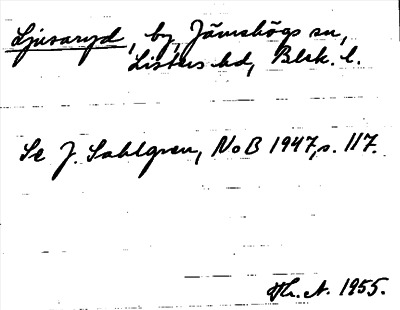 Ljusaryd, by, Jämshögs sn,
Listers hd, Blek. l.
Se J. Sahlgren, NoB 1947, s. 117.
Th. A. 1955.